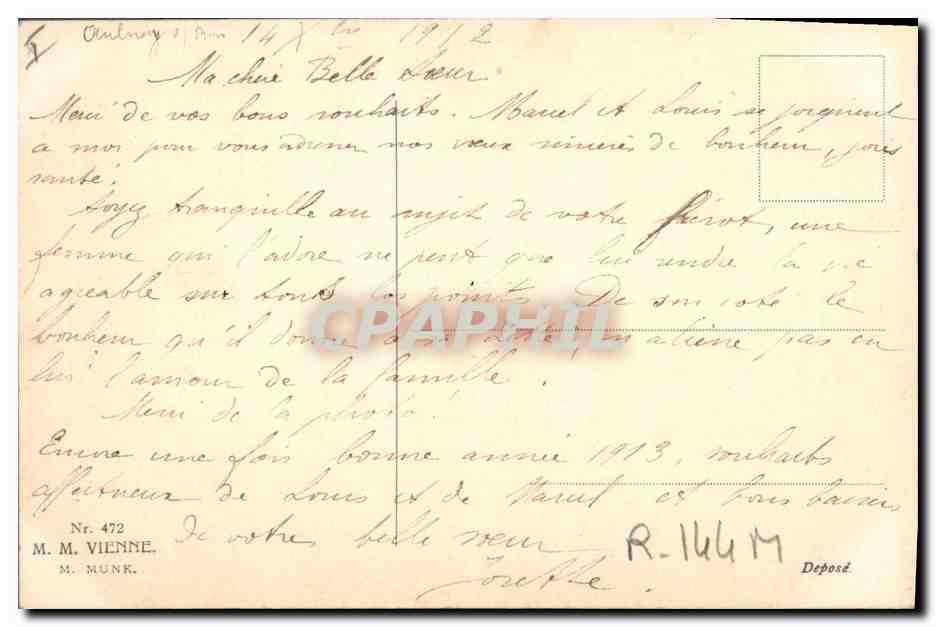 Aulnay s/ Bois 14 Xbre 1912
Ma chère Belle Sœur
Merci de vos bons souhaits. Marcel et Louis se joignent
a moi pour vous adresser nos vœux sincères de bonheur, joies
santé.
Soyez tranquille au sujet de votre frérot, une
femme qui l'adore ne peut que lui rendre la vie
agréable sur tous les points. De son coté le
bonheur qu'il donne à sa n'aliène pas en
lui l'amour de la famille.
Merci de la photo!
Encore une fois bonne année 1913, souhaits
affectueux de Louis et de Marcel et bons baisers
de votre belle sœur
CPAPHIL
Nr. 472
M. M. VIENNE.
M. MUNK.
R-144M
Deposé